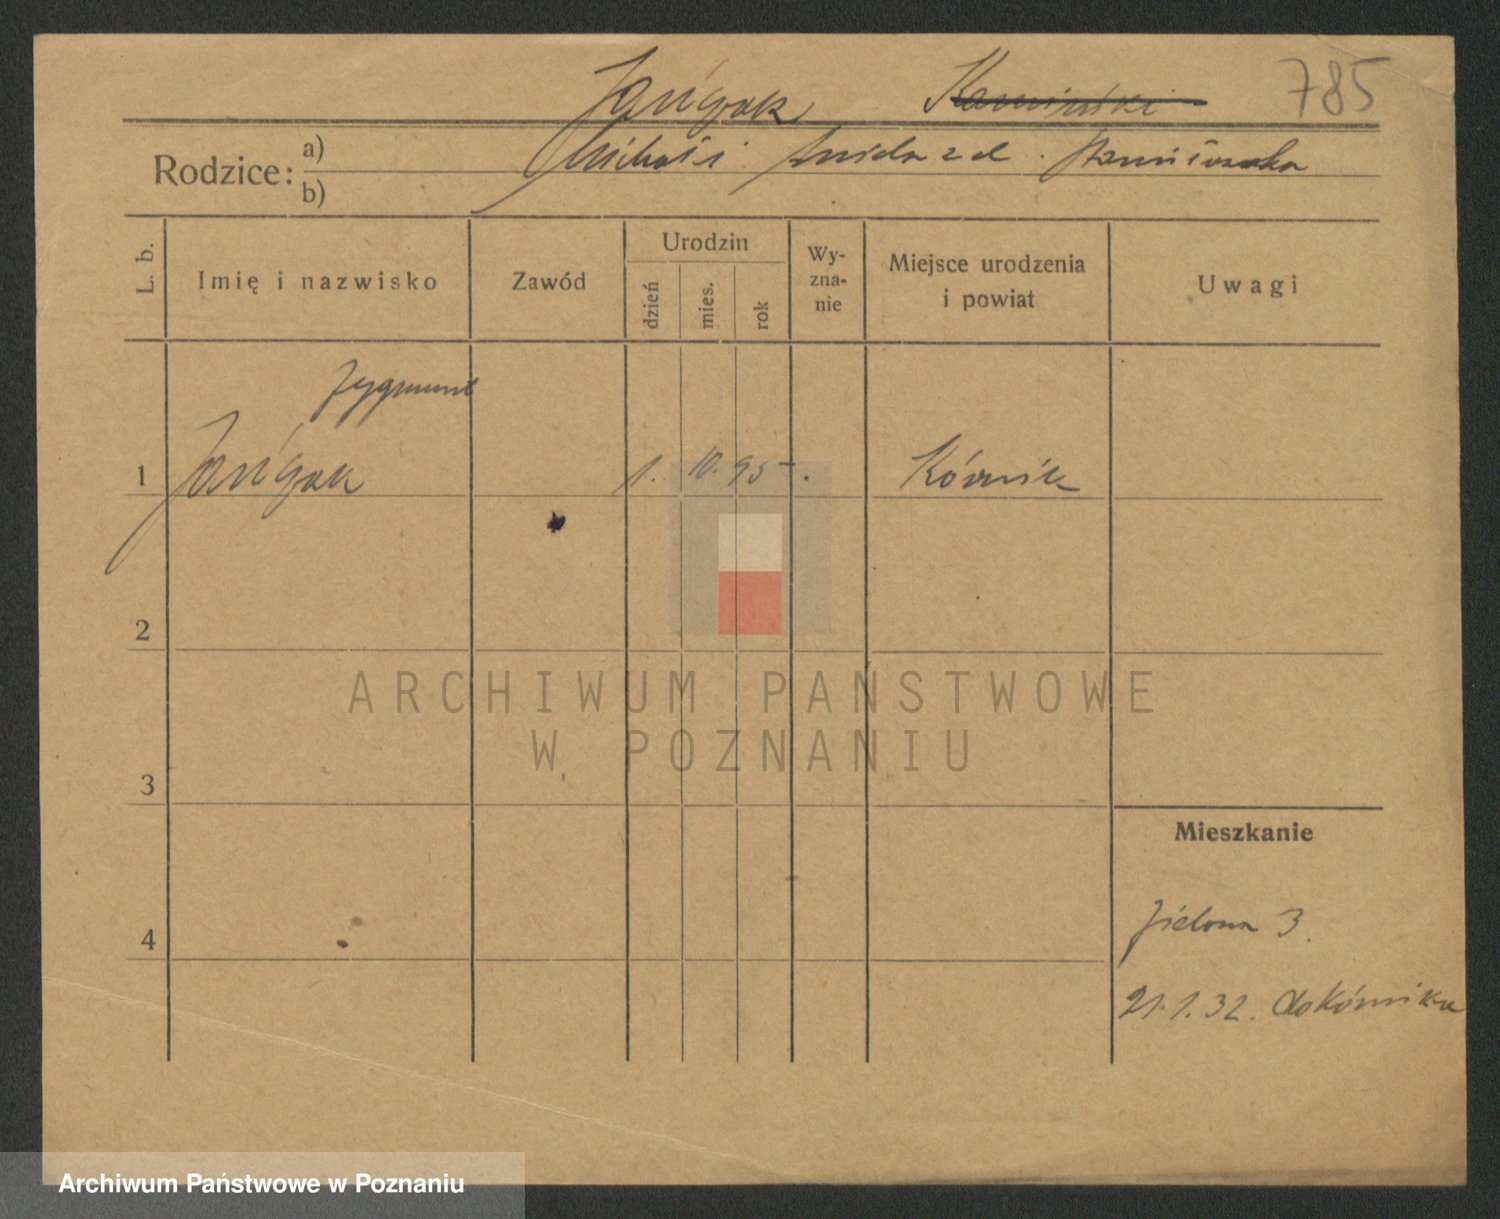 Kamiński 785
Rodzice: a)
b)
Michał i z d. Kamińska
L. b.
Imię i nazwisko
Zawód
Urodzin
dzień
mies.
rok
Wy-
zna-
nie
Miejsce urodzenia
i powiat
Uwagi
Zygmunt
1 1. 10. 95. Kórnik
2
3
4
Mieszkanie
Zielona 3.
21.1.32. do Kórnika
ARCHIWUM PAŃSTWOWE
W POZNANIU
Archiwum Państwowe w Poznaniu